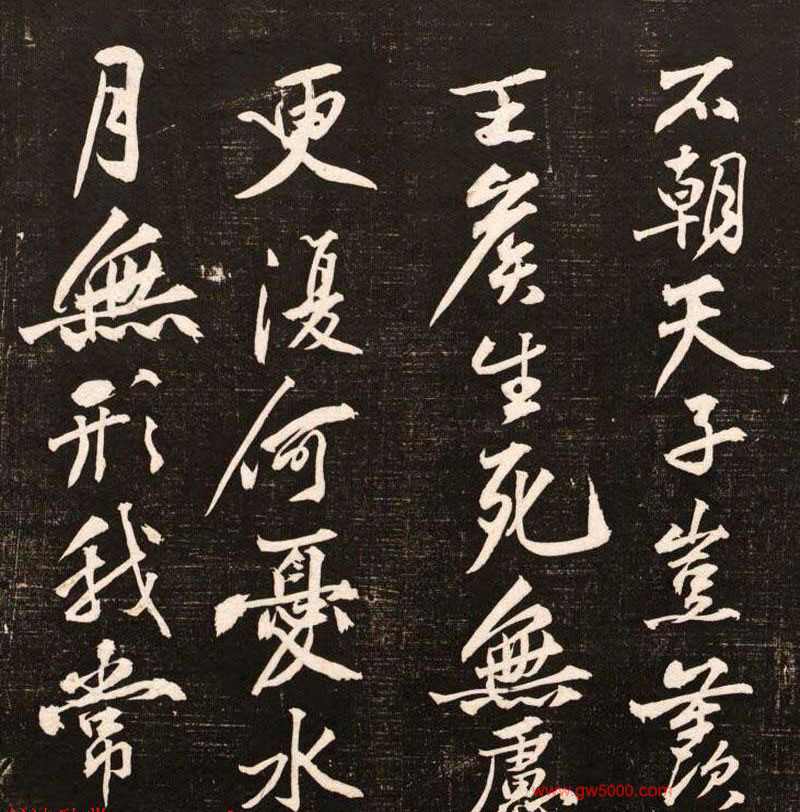 不朝天子豈羨
王矦生死無慮
更復何憂水
月無形我常
www.gw5000.com